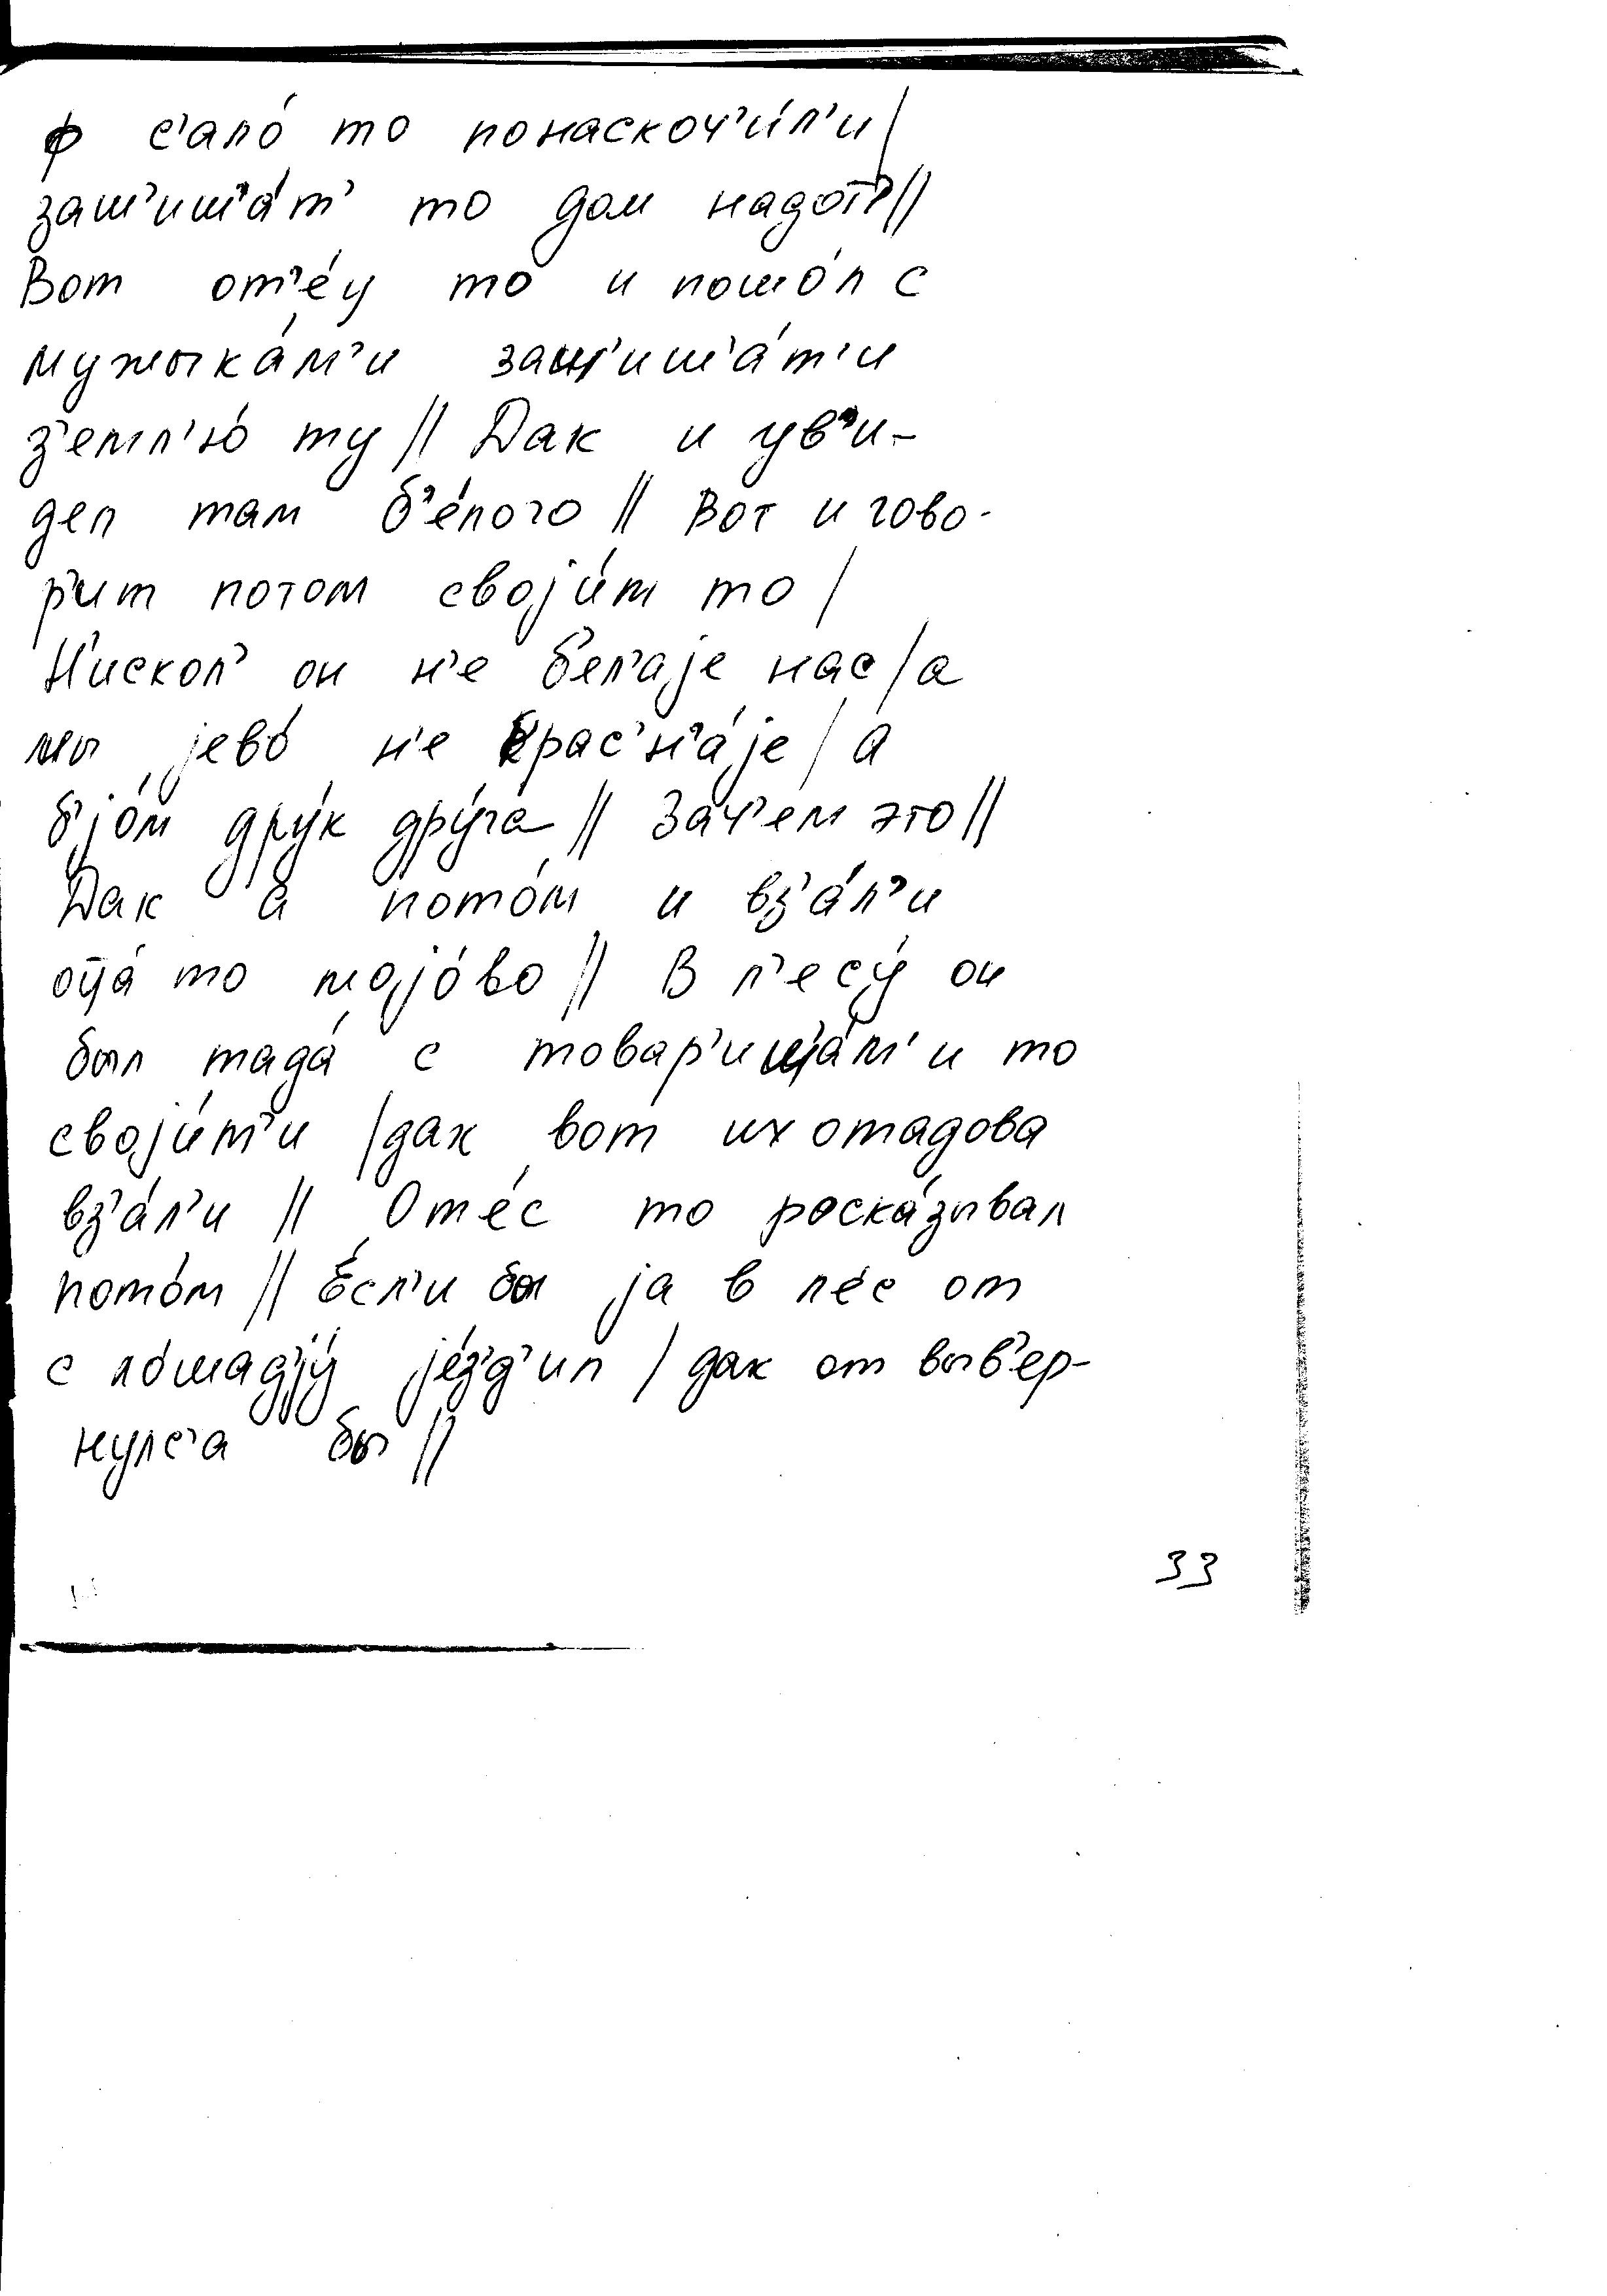 ф с'ало́ то понаскоч'и́л'и/
заш'иш'а́т' то дом надот'//
Вот от'е́ц то и пошо́л с
мужыка́м'и заш'иш'а́т'и
з'емл'ю́ ту // Дак и ув'и-
дел там б'е́лого // Вот и гово-
р'ит потом своjи́м то /
Н'искол' он н'е б'ел'аjе нас/а
мы jево́ н'е крас'н'а́jе / а
б'jо́м дру́к дру́га // Зач'е́м это//
Дак а пото́м и вз'а́л'и
оца́ то моjо́во // В л'есу́ он
был тада́ с товар'ищ'а́м'и то
своjи́м'и /дак вот их отадова
вз'а́л'и // Оте́с то роска́зывал
пото́м // Е́сл'и бы jа в ле́с от
с ло́шадjу́ jе́з'д'ил / дак от выв'ер-
нулс'а бы //
33